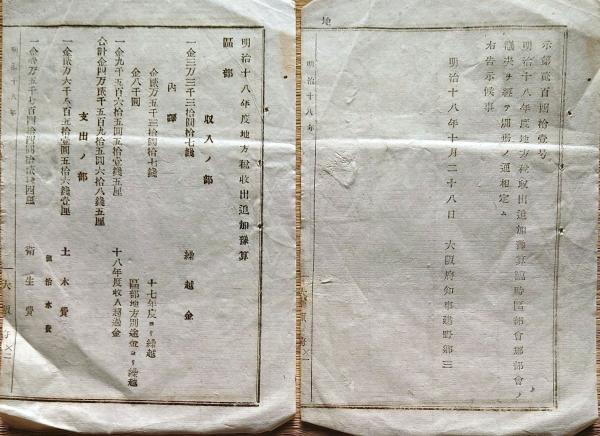 地
示第貳百四拾壹号
明治十八年度地方税收出追加豫算臨時區部會郡部會ノ
議決ヲ經テ別冊ノ通相定ム
右告示候事
明治十八年十月二十八日
大阪府知事建野郷三
明治十八年
明治十八年度地方税收出追加豫算
區部
收入ノ部
一金三万三千三拾圓拾七錢
繰越金
内譯
金貳万五千三拾圓拾七錢
十七年度ヨリ繰越
金八千圓
區部地方別途金ヨリ繰越
一金九千五百六拾五圓五拾壹錢五厘
十八年度收入超過金
合計金四万貳千五百九拾五圓六拾八錢五厘
支出ノ部
一金貳万六千八百五拾壹圓五拾六錢壹厘
土木費
治水費
衛生費
大阪府